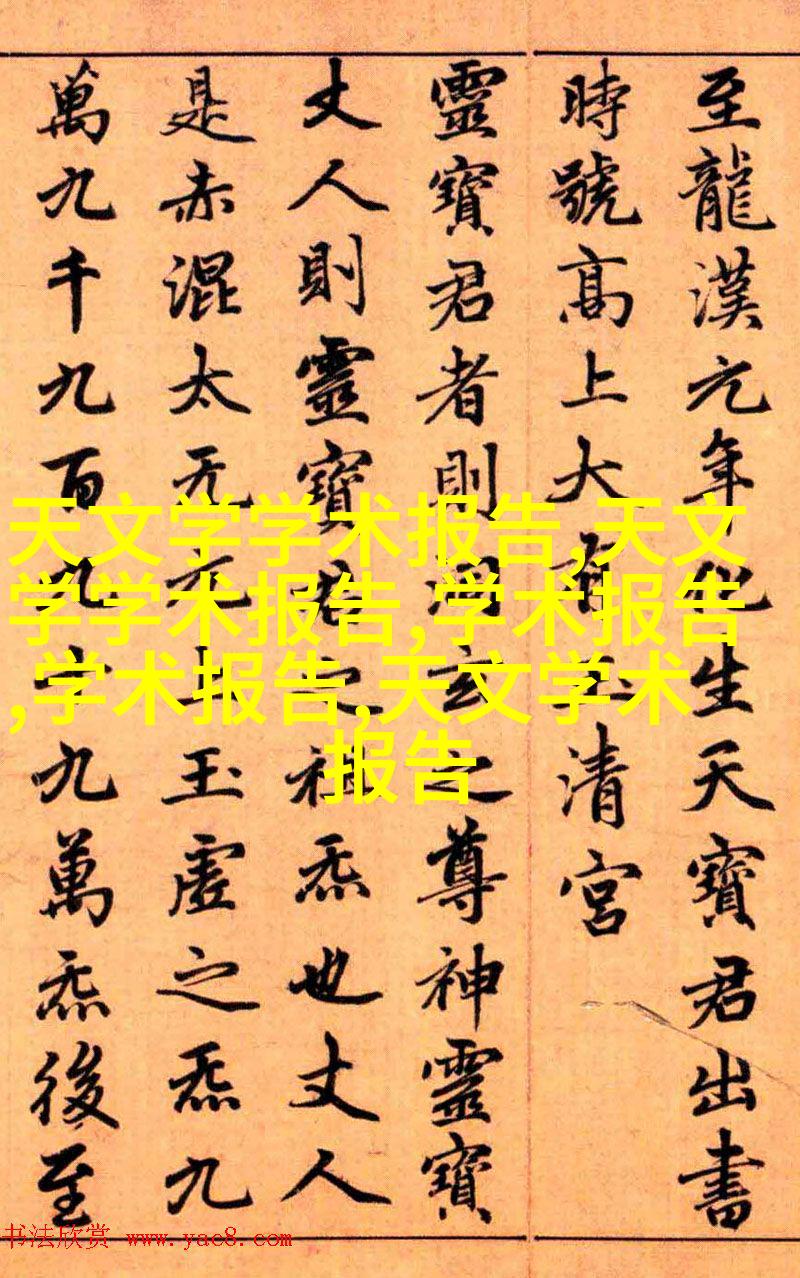 至龍漢元年化生天寶君出書
時號高上大有玉清宮
靈寶君者則洞玄之尊神靈寶
丈人則靈寶君之祖炁也丈人
是赤混太无元上玉虛之炁九
萬九千九百九十九萬炁後至
天文学学术报告,天文
学学术报告,学术报告
,学术报告,天文学术
报告
书法欣赏 www.yac8.com